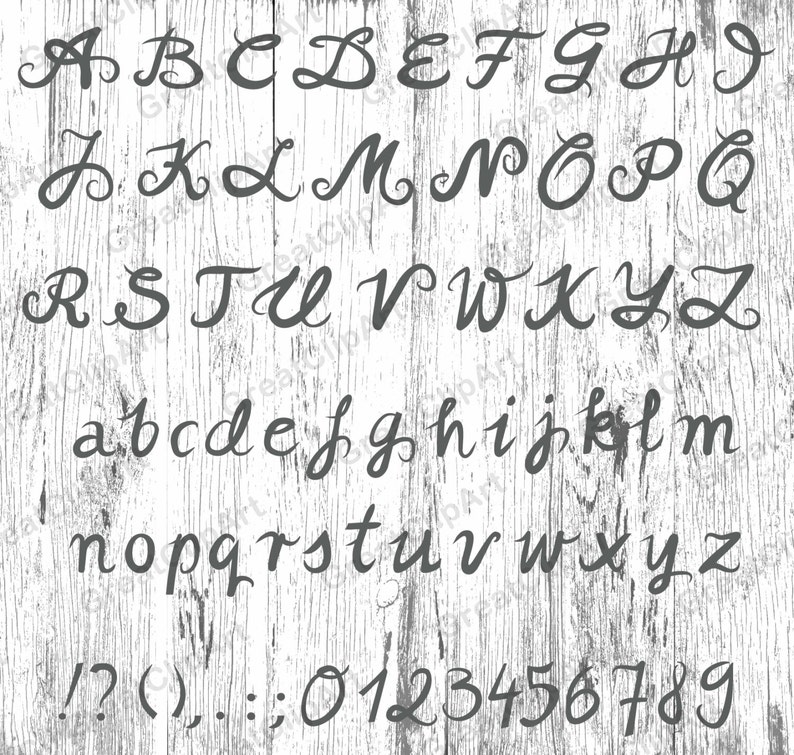 A B C D E F G H I
J K L M N O P Q
R S T U V W X Y Z
a b c d e f g h i j k l m
n o p q r s t u v w x y z
! ? ( ) , . : ; 0 1 2 3 4 5 6 7 8 9
GreatClipArt